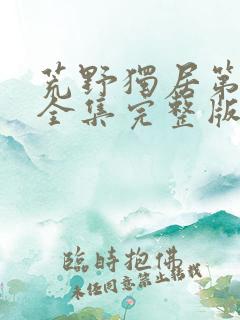 荒野獨居第
全集完整版
臨時抱佛
未经同意禁止转载